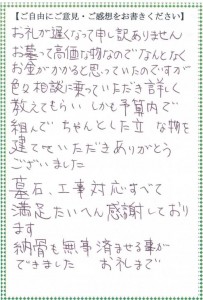 【ご自由にご意見・ご感想をお書きください】
お礼が遅くなって申し訳ありません
お墓って高価な物なのでなんとなく
お金がかかると思っていたのですが
色々相談に乗っていただき詳しく
教えてもらい しかも予算内で
組んで ちゃんとした立 な物を
建てていただきありがとう
ございました
墓石、工事対応すべて
満足たいへん感謝しており
ます
納骨も無事済ませる事が
できました お礼まで